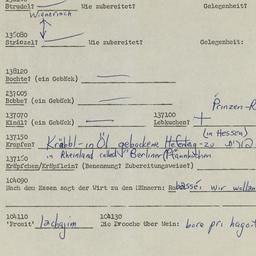 Strudel? Wie zubereitet? Gelegenheit?
Wienerisch
135080
Striezel? Wie zubereitet? Gelegenheit:
138120
Bochte? (ein Gebäck)
237005
Bobbe? (ein Gebäck)
Prinzen-R
137070 137100
Kindl? (ein Gebäck) Lebkuchen?
(in Hessen)
137150
Krapfen? Kräbbl - in Öl gebackene Hefeteig-
in Rheinland called "Berliner Pfannkuchen
137150
Kräpfchen/Kräpflein? (Benennung? Zubereitungsweise?)
104090
Nach dem Essen sagt der Wirt zu den Männern: wir wollen
104110 104130
'Prosit' lachajim Die Broche über Wein: bore pri hagof